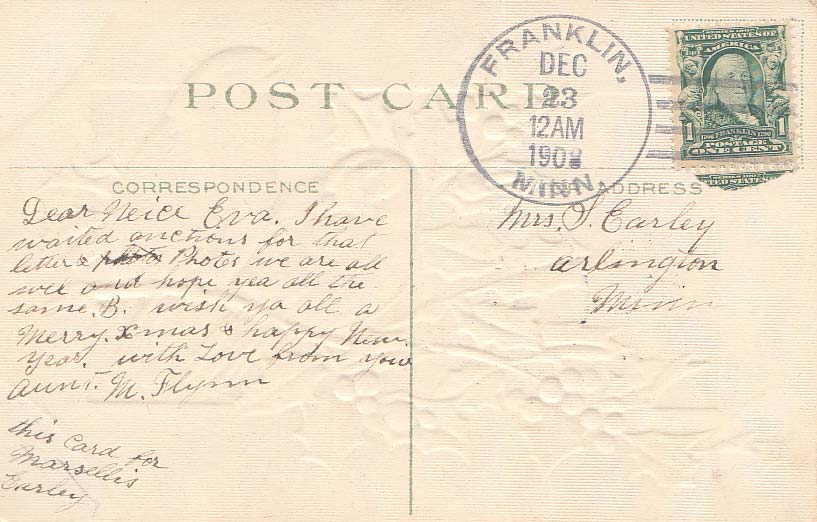 POST CARD
FRANKLIN,
DEC
23
12AM
1908
MINN.
SERIES 1902
UNITED STATES OF
AMERICA
1 FRANKLIN 1
POSTAGE
ONE CENT
UNITED STATES
CORRESPONDENCE
Dear Neice Eva. I have
waited anctious for that
letter & photos Photos we are all
well and hope yea all the
same. B. wish ya all a
Merry. Xmas & happy New.
Year. with Love from your
aunt. M. Flynn
this Card for
Marsellis
Earley
ADDRESS
Mrs. J. Earley
arlington
Minn